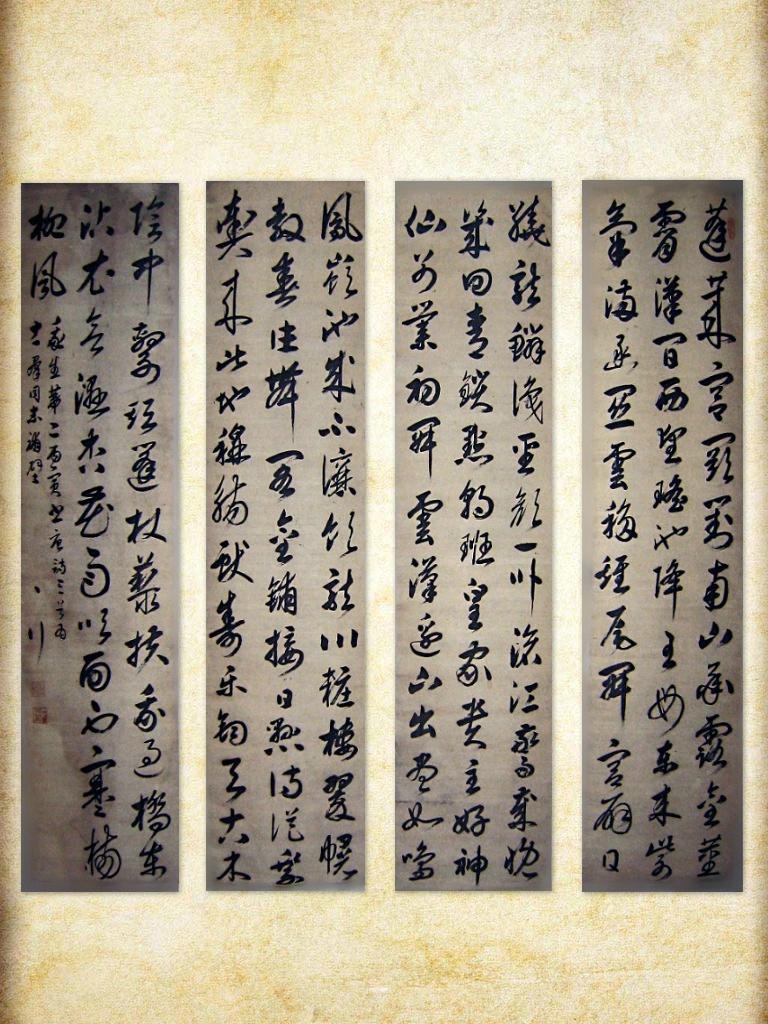 蓬萊宮闕對南山承露金莖
霄漢間西望瑤池降王母東來紫
氣滿函關雲移雉尾開宮扇日
繞龍鱗識聖顏一臥滄江驚歲晚
幾回青鎖點朝班皇家貴主好神
仙別業初開雲漢邊山出盡如鳴
鳳嶺池成不讓飲龍川粧樓翠幌
教春住舞閣金鋪接日懸侍從乘
輿來此地稱觴獻壽樂鈞天古木
陰中繫短篷杖藜扶我過橋東
沾衣欲濕杏花雨吹面不寒楊
柳風
書唐詩三首為
同志補壁